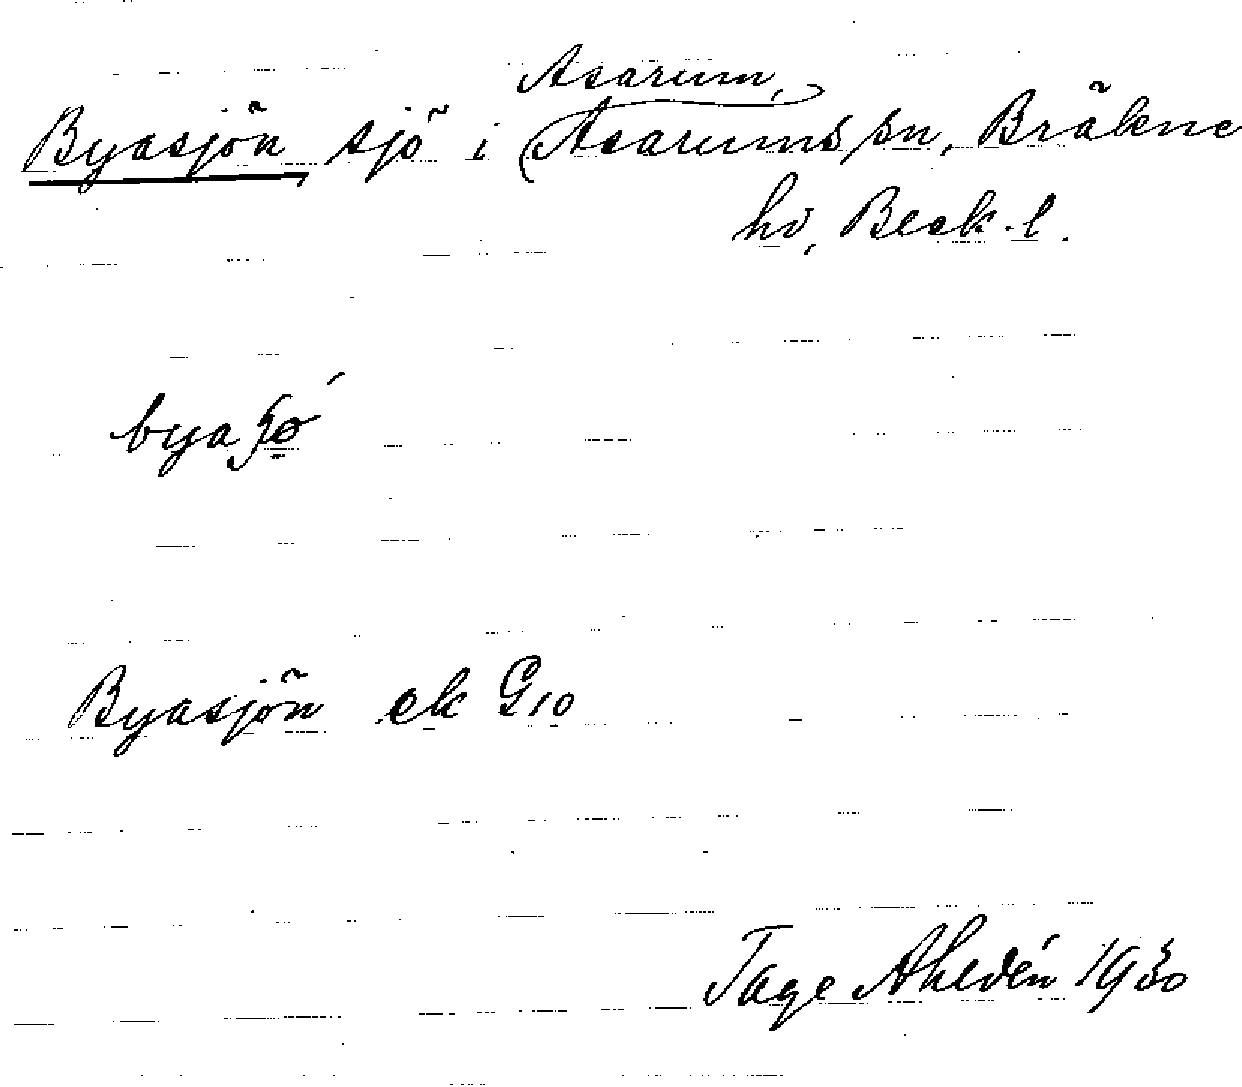 Asarum,
Byasjön, sjö i (Asarums sn, Bräkne
hd, Blek. l.
Byasjön ek G10
Tage Ahldén 1930